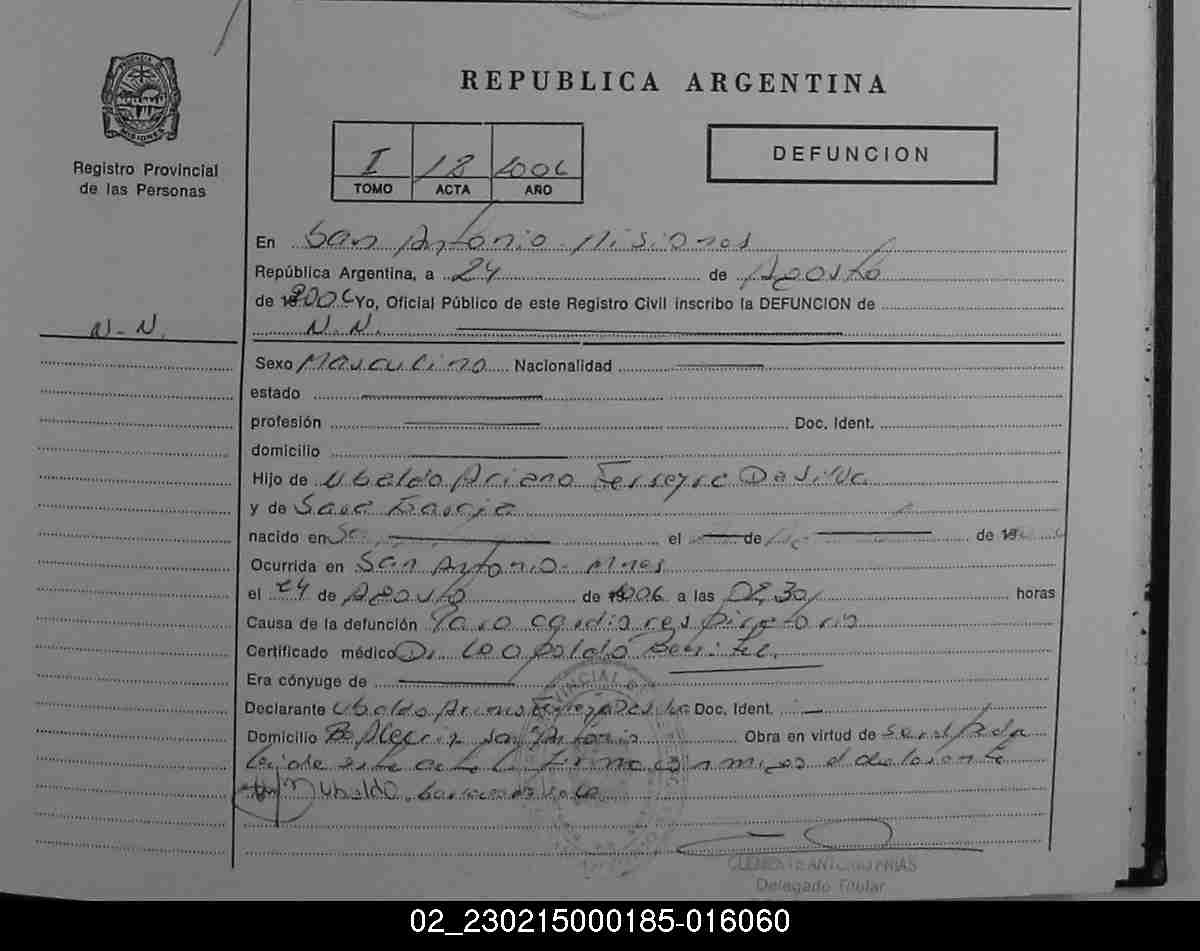 REPUBLICA ARGENTINA
Registro Provincial
de las Personas
I 18 2006
TOMO ACTA AÑO
DEFUNCION
En San Antonio Misiones
República Argentina, a 24 de Agosto
de 2006 Yo, Oficial Público de este Registro Civil inscribo la DEFUNCION de
N. N.
N. N.
Sexo Masculino Nacionalidad
estado
profesión Doc. Ident.
domicilio
Hijo de Ubaldo Ariano Ferreyra Da Silva
y de Sara
nacido en el de de 19
Ocurrida en San Antonio Mnes
el 24 de Agosto de 2006 a las 02,30 horas
Causa de la defunción Paro cardiorespiratorio
Certificado médico Dr Leopoldo Benitez
Era cónyuge de
Declarante Ubaldo Ariano Ferreyra Da Silva Doc. Ident.
Domicilio San Antonio Obra en virtud de
Leida este acta la firma conmigo el declarante
Ubaldo
CLEMENTE ANTONIO FRIAS
Delegado Titular
02_230215000185-016060